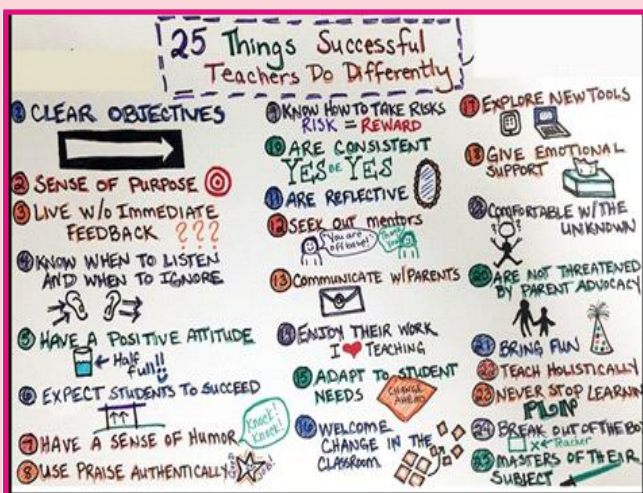 25 Things Successful
Teachers Do Differently
1 CLEAR OBJECTIVES
2 SENSE OF PURPOSE
3 LIVE W/O IMMEDIATE
FEEDBACK ???
4 KNOW WHEN TO LISTEN
AND WHEN TO IGNORE
5 HAVE A POSITIVE ATTITUDE
Half
full!!
6 EXPECT STUDENTS TO SUCCEED
7 HAVE A SENSE OF HUMOR
Knock!
Knock!
8 USE PRAISE AUTHENTICALLY
9 KNOW HOW TO TAKE RISKS
RISK = REWARD
10 ARE CONSISTENT
YES BE YES
11 ARE REFLECTIVE
12 SEEK OUT mentors
You are
off base!
Thank
you
13 Communicate W/PARENTS
14 ENJOY THEIR WORK
I ❤ TEACHING
15 ADAPT TO STUDENT
NEEDS
CHANGE
AHEAD
16 WELCOME
CHANGE IN THE
CLASSROOM
17 EXPLORE NEW TOOLS
18 GIVE EMOTIONAL
SUPPORT
19 COMFORTABLE W/THE
UNKNOWN
20 ARE NOT THREATENED
BY PARENT ADVOCACY
21 BRING FUN
22 TEACH HOLISTICALLY
23 NEVER STOP LEARNIN
24 BREAK OUT OF THE BO
Teacher
25 MASTERS OF THEIR
SUBJECT